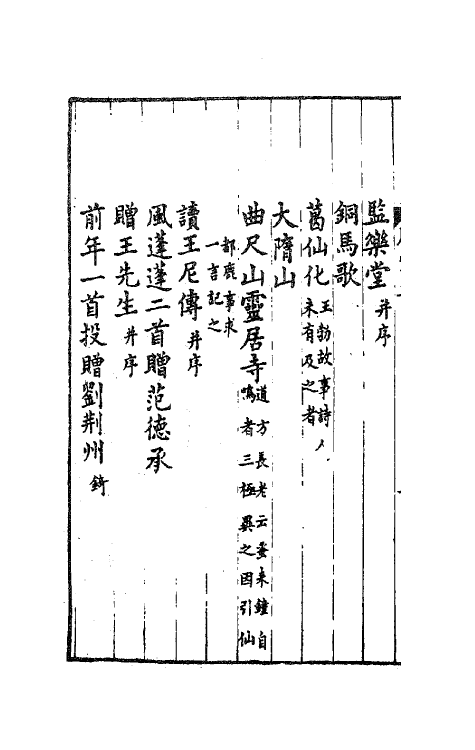 監樂堂 并序
銅馬歌
葛仙化 王勃故事詩人未有及之者
大隋山
曲尺山靈居寺 道方長老云蚤來鐘自鳴者三極異之因引仙都鹿事求一言記之
讀王尼傳 并序
風蓬蓬二首贈范德承
贈王先生 并序
前年一首投贈劉荆州 錡